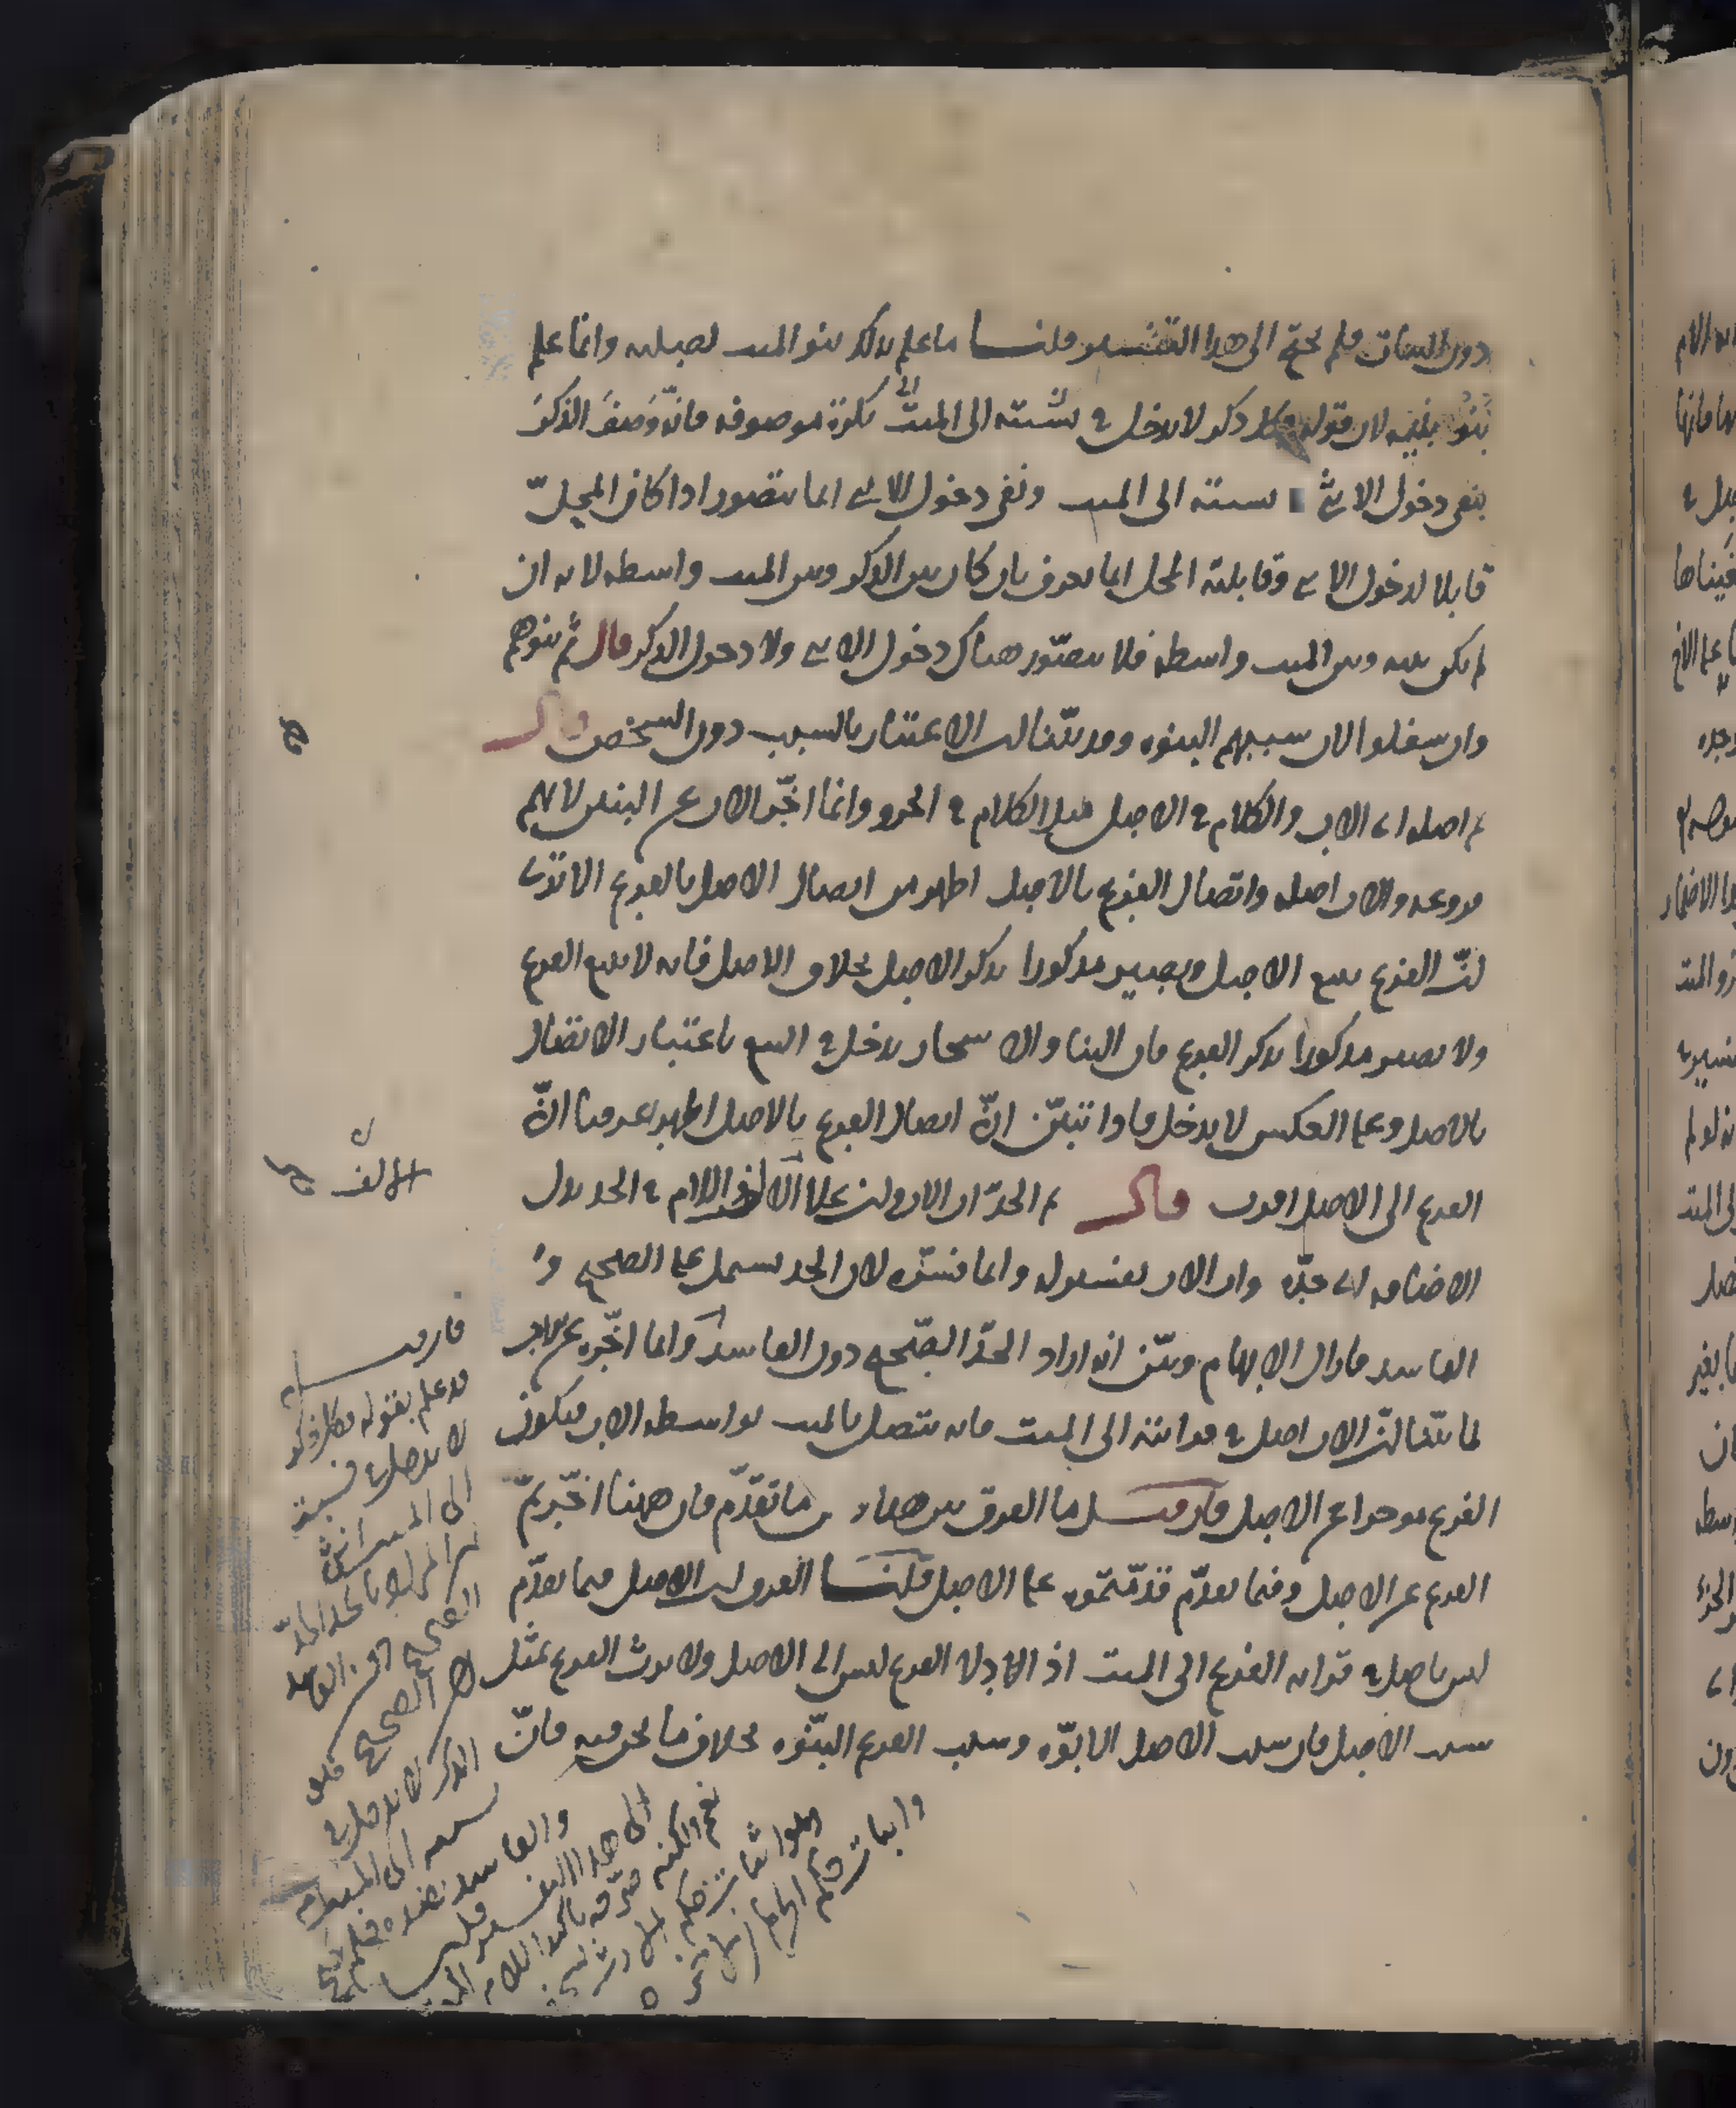 دون البنات فلم يحتج الى هذا التفسير قلنا ما علم بذلك بنو الميت لصلبه وانما علم
بنو بنيه لان قوله وكل ذكر لا يدخل في نسبته الى الميت انثى نكرة موصوفة فانه وصف الذكر
بنفي دخول الانثى نسبته الى الميت ونفي دخول الانثى انما يتصور اذا كان المحل
قابلا لدخول الانثى وقابلية المحل انما يعرف بان كان بين الذكر وبين الميت واسطة لانه ان
لم يكن بينه وبين الميت واسطة فلا يتصور هناك دخول الانثى ولا دخول الذكر قال ثم بنوهم
وان سفلوا لان سببهم البنوة وقد بينا ان الاعتبار بالسبب دون الشخص قال
ثم اصله اي الاب والكلام في الاصل مثل الكلام في الجزء وانما اخر الاب عن البنين لانهم
فروعه والاب اصله واتصال الفرع بالاصل اظهر من اتصال الاصل بالفرع الا ترى
ان الفرع يتبع الاصل ويصير مذكورا بذكر الاصل بخلاف الاصل فانه لا يتبع الفرع
ولا يصير مذكورا بذكر الفرع فان البناء والاشجار يدخل في البيع باعتبار الاتصال
بالاصل وعلى العكس لا يدخل فاذا تبين ان اتصال الفرع بالاصل اظهر عرفنا ان
الفرع الى الاصل اقرب قال ثم الجد اب الاب وان علا الالف واللام في الجد بدل
الاضافة اي جده واب الاب تفسير له وانما فسره لان الجد يشمل على الصحيح و
الفاسد فازال الابهام وبين انه اراد الجد الصحيح دون الفاسد وانما اخره عن الاب
لما بينا ان الاب اصل في قرابته الى الميت فانه يتصل بالميت بواسطة الاب فيكون
الفرع مؤخرا عن الاصل فان قيل ما الفرق بين ههنا و ما تقدم فان ههنا اخرتم
الفرع عن الاصل وفيما تقدم قدمتموه على الاصل قلنا الفرق ان الاصل فيما تقدم
ليس باصل في قرابة الفرع الى الميت اذ الادلاء الفرع ليس الى الاصل ولا يرث الفرع بمثل
سبب الاصل فان سبب الاصل الابوة وسبب الفرع البنوة بخلاف ما نحن فيه فان
الالف
فان قيل
قد علم بقوله وكل ذكر
لا يدخل في نسبته
الى الميت انثى
ان المراد بالجد الجد
الصحيح دون الفاسد
لان الصحيح
الذكر لا يدخل في
نسبته الى الميت ام
والفاسد بضده فلم يحتج
الى هذا التفسير قلنا
نعم ولكنه